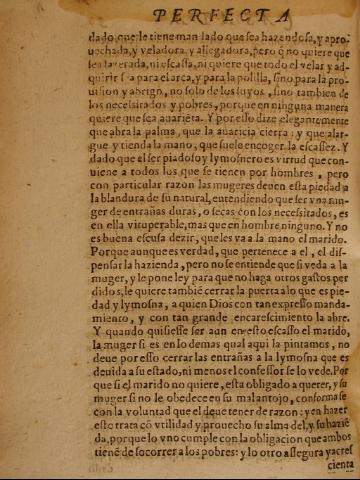 PERFECTA
dado que le tiene man lado que sea hazendosa, y apro-
uechada, y veladora, y allegadora, pero q̃ no quiere que
sea lazerada, ni escassa, ni quiere que todo el velar y ad-
quirir sea para el arca, y para la polilla, sino para la pro-
uision y abrigo, no solo de los suyos, sino tambien de
los necesitados y pobres, porque en ninguna manera
quiere que sea auarieta. Y por esso dize elegantemente
que abra la palma, que la auaricia cierra: y que alar-
gue y tienda la mano, que suele encoger la escassez. Y
dado que el ser piadoso y lymosnero es virtud que con-
uiene a todos los que se tienen por hombres, pero
con particular razon las mugeres deuen esta piedad a
la blandura de su natural, entendiendo que ser vna mu-
ger de entrañas duras, o secas con los necessitados, es
en ella vituperable, mas que en hombre ninguno. Y no
es buena escusa dezir, que les va a la mano el marido.
Porque aunque es verdad, que pertenece a el, el dis-
pensar la hazienda, pero no se entiende que si veda a la
muger, y le pone ley para que no haga otros gastos per
didos, le quiere tambié cerrar la puerta a lo que es pie-
dad y lymosna, a quien Dios con tan expresso manda-
miento, y con tan grande encarescimiento la abre.
Y quando quisiesse ser aun en esto escasso el marido,
la muger si es en lo demas qual aqui la pintamos, no
deue por esso cerrar las entrañas a la lymosna que es
deuida a su estado, ni menos el confessor se lo vede. Por
que si el marido no quiere, esta obligado a querer, y su
muger si no le obedece en su mal antojo, conformase
con la voluntad que el deue tener de razon: y en hazer
esto trata cō vtilidad y prouecho su alma del, y su haziē
da, porque lo vno cumple con la obligacion que ambos
tiené de socorrer a los pobres: y lo otro assegura y acres
cienta